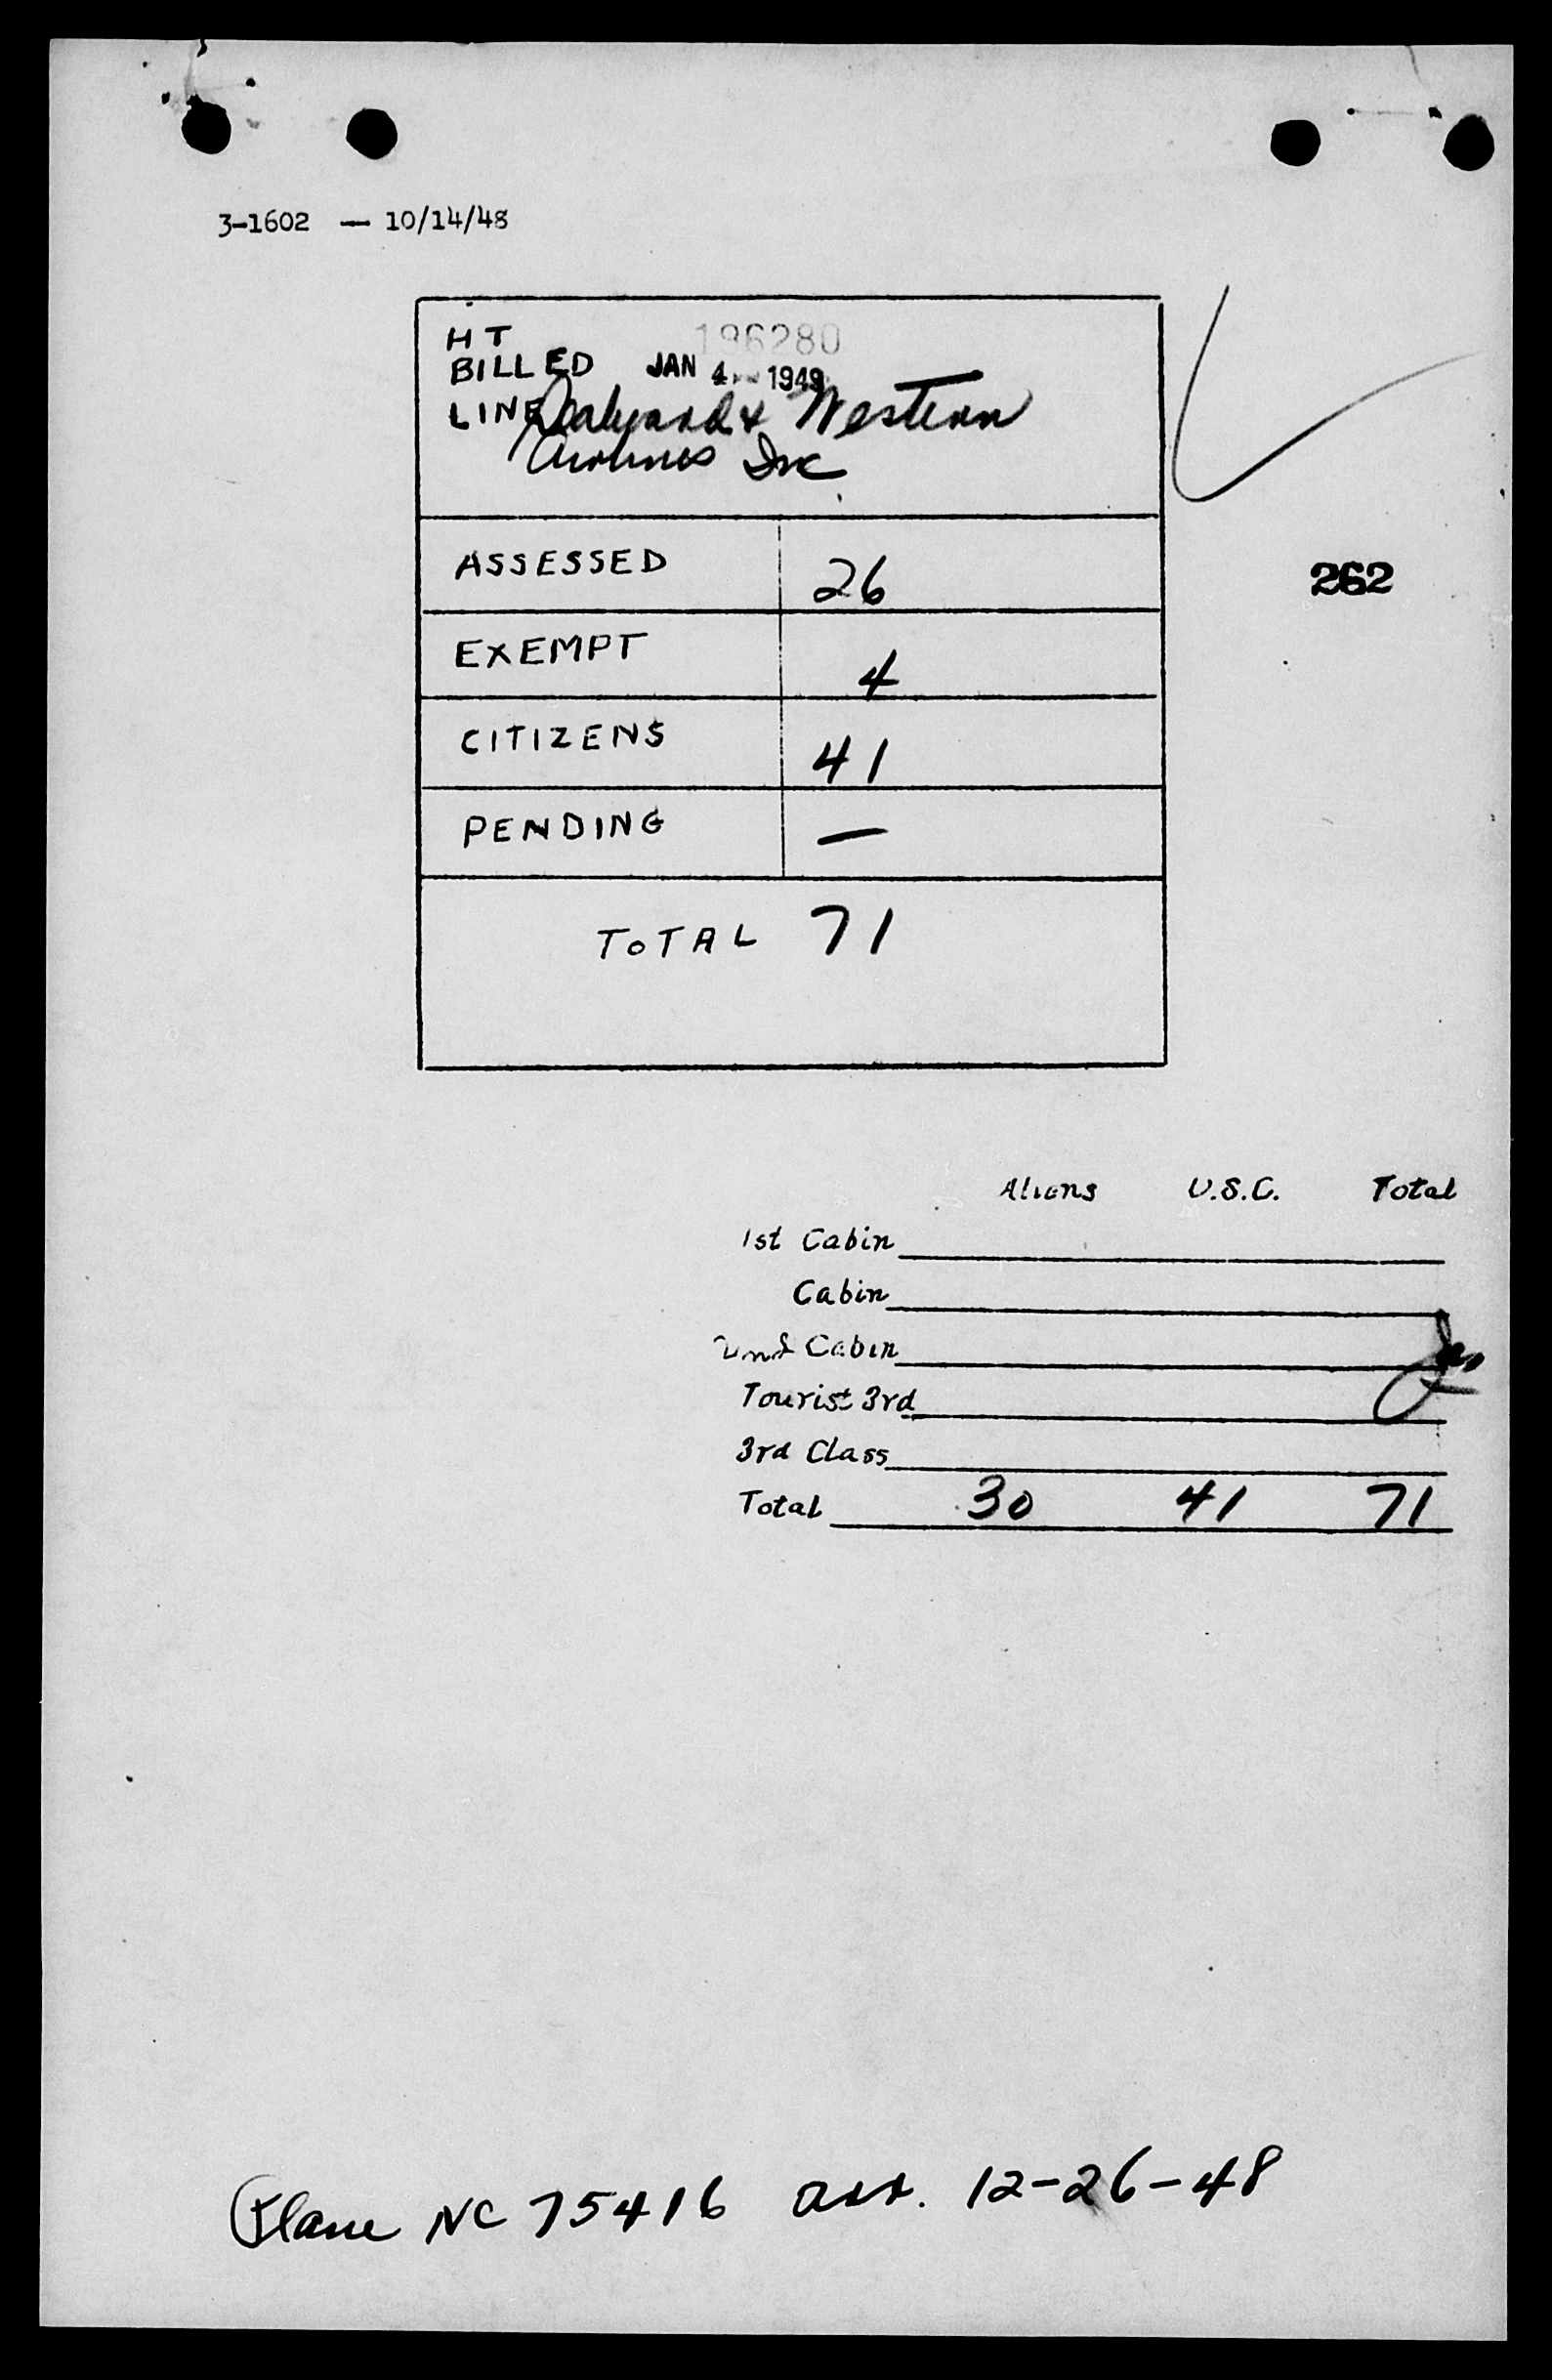 3-1602 — 10/14/48
HT 196280
BILLED JAN 4 1949
LINE & Western
Airlines Inc
ASSESSED 26
262
EXEMPT 4
CITIZENS 41
PENDING —
TOTAL 71
Aliens U.S.C. Total
1st Cabin
Cabin
2nd Cabin
Tourist 3rd
3rd Class
Total 30 41 71
Plane NC 75416 arr. 12-26-48